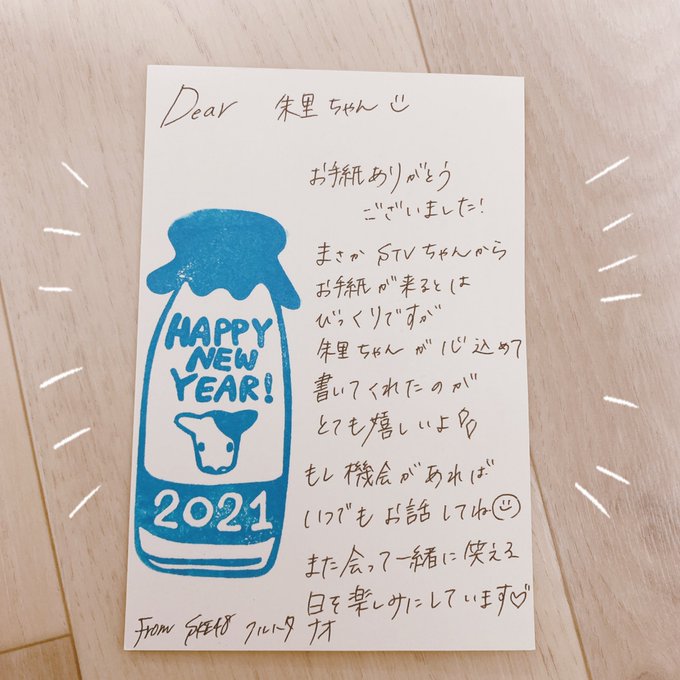 Dear 朱里ちゃん
お手紙ありがとう
ございました!
まさか STVちゃんから
お手紙が来るとは
びっくりですが
朱里ちゃんが心込めて
書いてくれたのが
とても嬉しいよ
もし機会があれば
いつでもお話してね
また会って一緒に笑える
日を楽しみにしています♡
HAPPY
NEW
YEAR!
2021
From SKE48 フルハタ ナオ